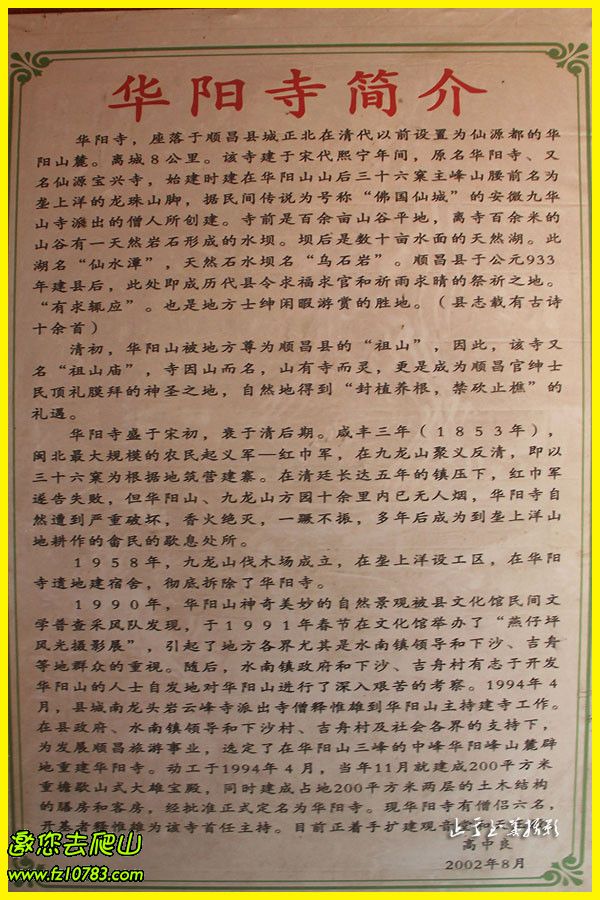 华阳寺简介
华阳寺，座落于顺昌县城正北在清代以前设置为仙源都的华
阳山麓。离城8公里。该寺建于宋代熙宁年间，原名华阳寺、又
名仙源宝兴寺，始建时建在华阳山山后三十六窠主峰山腰前名为
垄上洋的龙珠山脚，据民间传说为号称“佛国仙城”的安徽九华
山寺派出的僧人所创建。寺前是百余亩山谷平地，离寺百余米的
山谷有一天然岩石形成的水坝。坝后是数十亩水面的天然湖。此
湖名“仙水潭”，天然石水坝名“乌石岩”。顺昌县于公元933
年建县后，此处即成历代县令求福求官和祈雨求晴的祭祈之地。
“有求辄应”。也是地方士绅闲暇游赏的胜地。（县志载有古诗
十余首）
清初，华阳山被地方尊为顺昌县的“祖山”，因此，该寺又
名“祖山庙”，寺因山而名，山有寺而灵，更是成为顺昌官绅士
民顶礼膜拜的神圣之地，自然地得到“封植养根，禁砍止樵”的
礼遇。
华阳寺盛于宋初，衰于清后期。咸丰三年（1853年），
闽北最大规模的农民起义军—红巾军，在九龙山聚义反清，即以
三十六窠为根据地筑营建寨。在清廷长达五年的镇压下，红巾军
遂告失败，但华阳山、九龙山方园十余里内已无人烟，华阳寺自
然遭到严重破坏，香火绝灭，一蹶不振，多年后成为到垄上洋山
地耕作的畲民的歇息处所。
1958年，九龙山伐木场成立，在垄上洋设工区，在华阳
寺遗地建宿舍，彻底拆除了华阳寺。
1990年，华阳山神奇美妙的自然景观被县文化馆民间文
学普查采风队发现，于1991年春节在文化馆举办了“燕仔坪
风光摄影展”，引起了地方各界尤其是水南镇领导和下沙、吉舟
等地群众的重视。随后，水南镇政府和下沙、吉舟村有志于开发
华阳山的人士自发地对华阳山进行了深入艰苦的考察。1994年4
月，县城南龙头岩云峰寺派出寺僧释惟雄到华阳山主持建寺工作。
在县政府、水南镇领导和下沙村、吉舟村及社会各界的支持下，
为发展顺昌旅游事业，选定了在华阳山三峰的中峰华阳峰山麓辟
地重建华阳寺。动工于1994年4月，当年11月就建成200平方米
重檐歇山式大雄宝殿，同时建成占地200平方米两层的土木结构
的膳房和客房，经批准正式定名为华阳寺。现华阳寺有僧侣六名，
开基者释惟雄为该寺首任主持。目前正着手扩建观音
高中良
2002年8月
邀您去爬山
www.fz10783.com